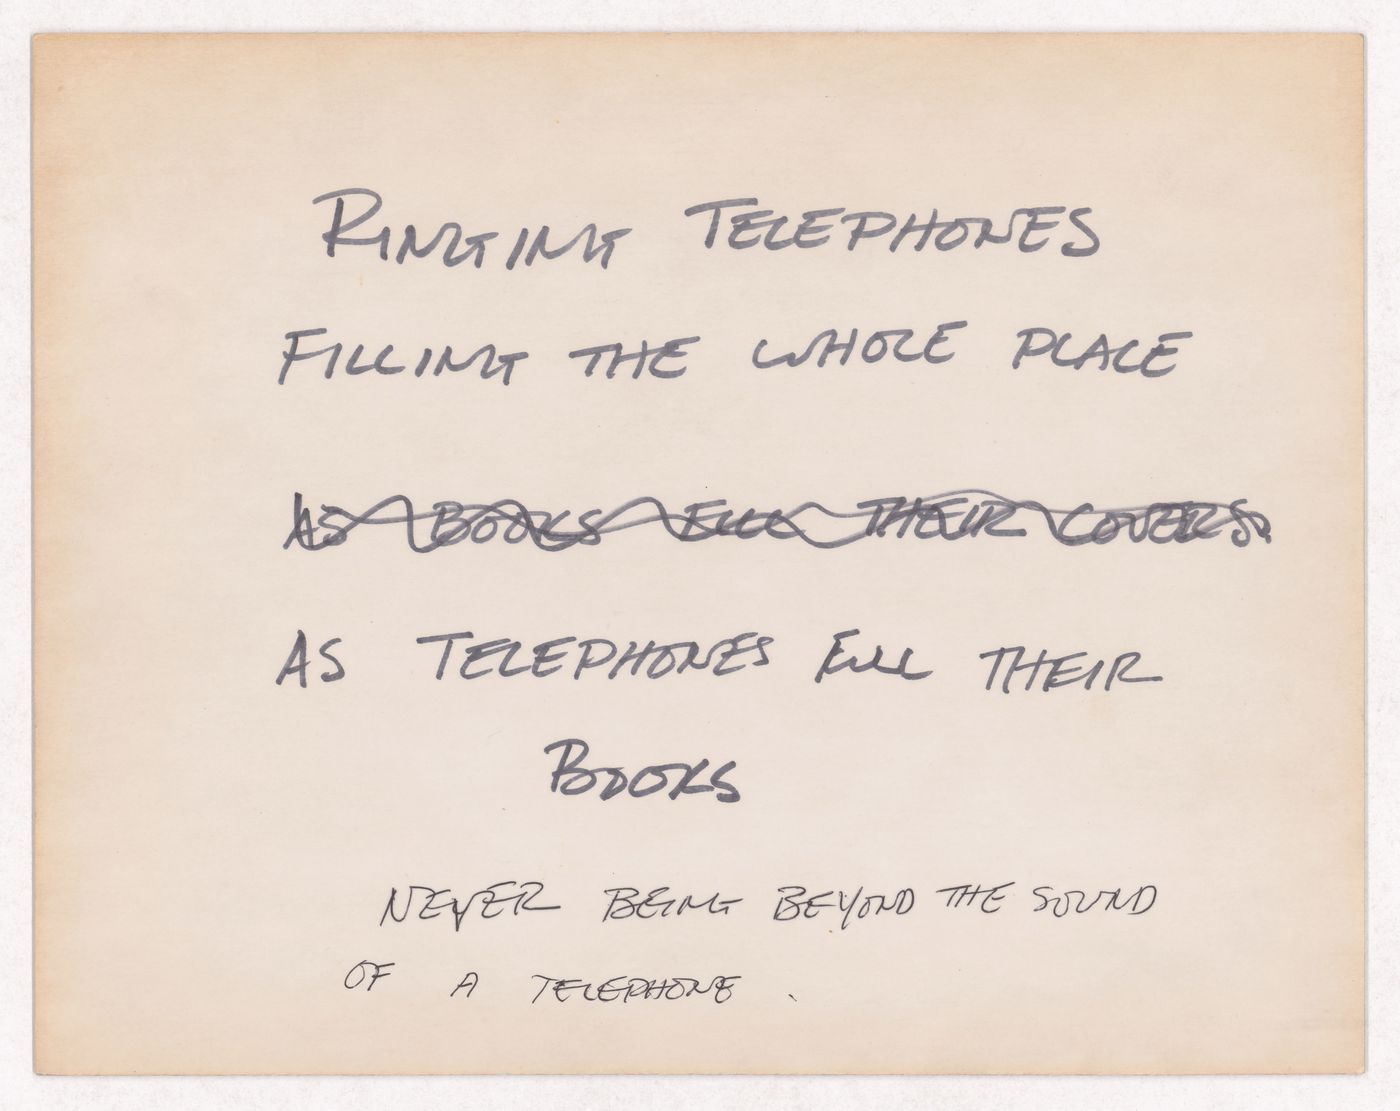 RINGING TELEPHONES
FILLING THE WHOLE PLACE
AS BOOKS FILL THEIR COVERS.
AS TELEPHONES FILL THEIR
BOOKS
NEVER BEING BEYOND THE SOUND
OF A TELEPHONE .